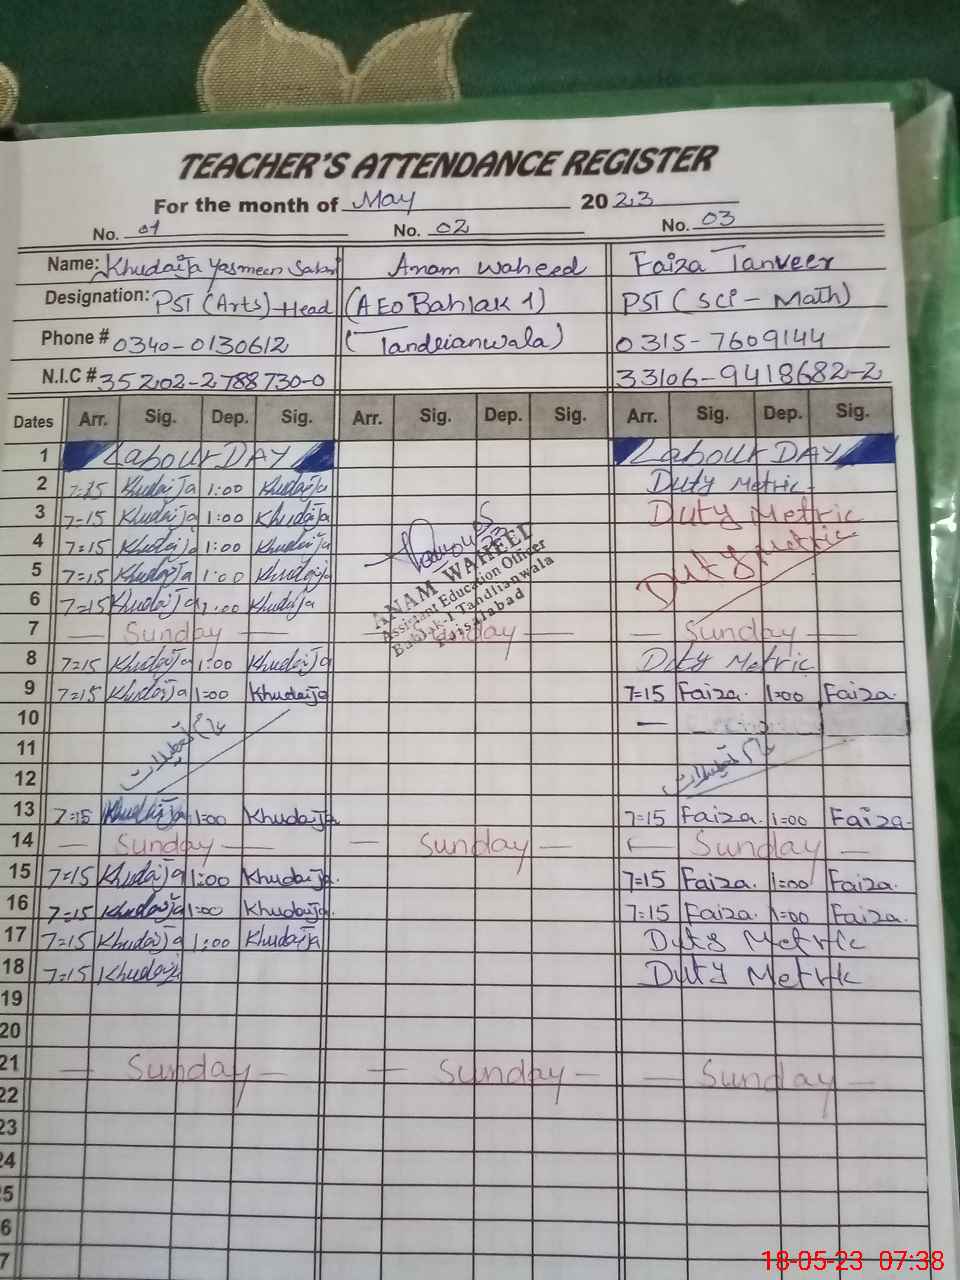 TEACHER'S ATTENDANCE REGISTER
For the month of May 2023
No. 01 No. 02 No. 03
Name: Khudaija Yasmeen Anam Waheed Faiza Tanveer
Designation: PST (Arts) Head (AEO Bahlak 1) PST (Sci - Math)
Phone # 0340-0130612 (Tandlianwala) 0315-7609144
N.I.C # 35202-2788730-0 33106-9418682-2
Dates Arr. Sig. Dep. Sig. Arr. Sig. Dep. Sig. Arr. Sig. Dep. Sig.
1 Labour DAY Labour DAY
2 7=15 Khudaija 1:00 Khudaija Duty Metric
3 7=15 Khudaija 1:00 Khudaija Duty Metric
4 7=15 Khudaija 1:00 Khudaija Duty Metric
ANAM WAHEED
Assistant Education Officer
Bahlak-I Tandlianwala
Faisalabad
5 7=15 Khudaija 1:00 Khudaija
6 7=15 Khudaija 1:00 Khudaija
7 — Sunday — Sunday — — Sunday —
8 7=15 Khudaija 1:00 Khudaija Duty Metric
9 7=15 Khudaija 1=00 Khudaija 7=15 Faiza. 1=00 Faiza.
10 —
11 عام تعطیلات عام تعطیلات
12
13 7=15 Khudaija 1=00 Khudaija 7=15 Faiza. 1=00 Faiza.
14 — Sunday — — Sunday — Sunday —
15 7=15 Khudaija 1:00 Khudaija. 7=15 Faiza. 1=00 Faiza.
16 7=15 Khudaija 1=00 Khudaija. 7=15 Faiza. 1=00 Faiza.
17 7=15 Khudaija 1:00 Khudaija Duty Metric
18 7=15 Khudaija Duty Metric
19
20
21 — Sunday — — Sunday — — Sunday —
22
23
24
5
6
7
18-05-23 07:38